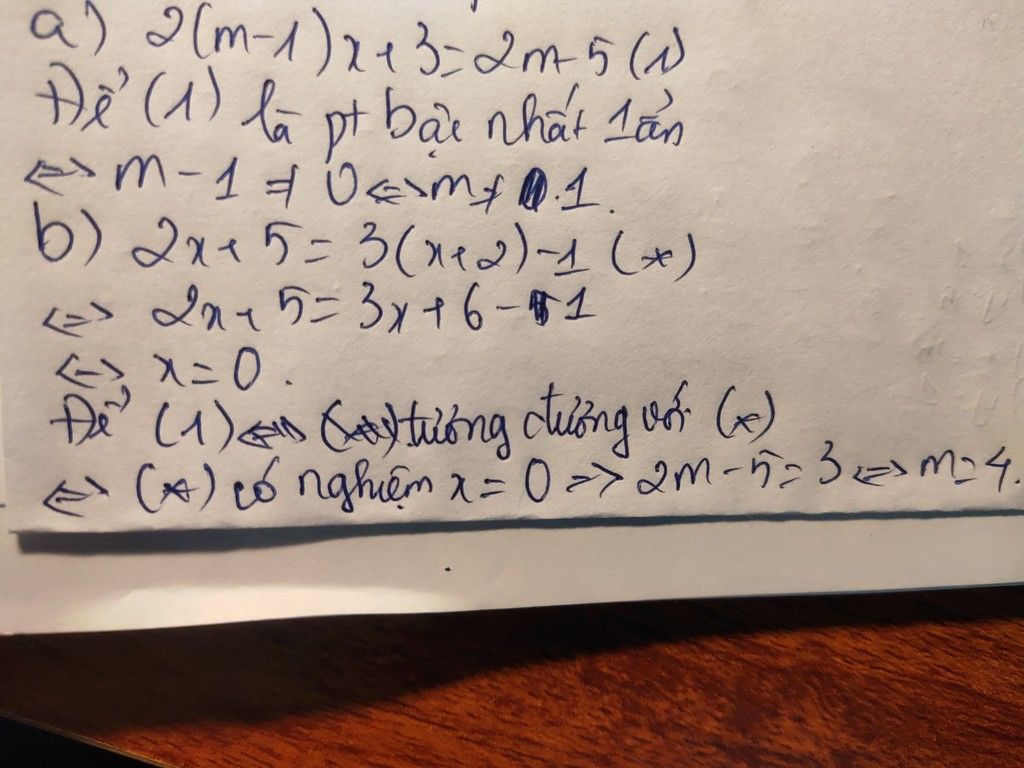 a) 2(m-1)x+3=2m-5 (1)
Để (1) là pt bậc nhất 1 ẩn
<=> m-1 ≠ 0 <=> m ≠ 1.
b) 2x+5=3(x+2)-1 (*)
<=> 2x+5=3x+6-1
<=> x=0.
Để (1) tương đương với (*)
<=> (*) có nghiệm x=0 => 2m-5=3 <=> m=4.